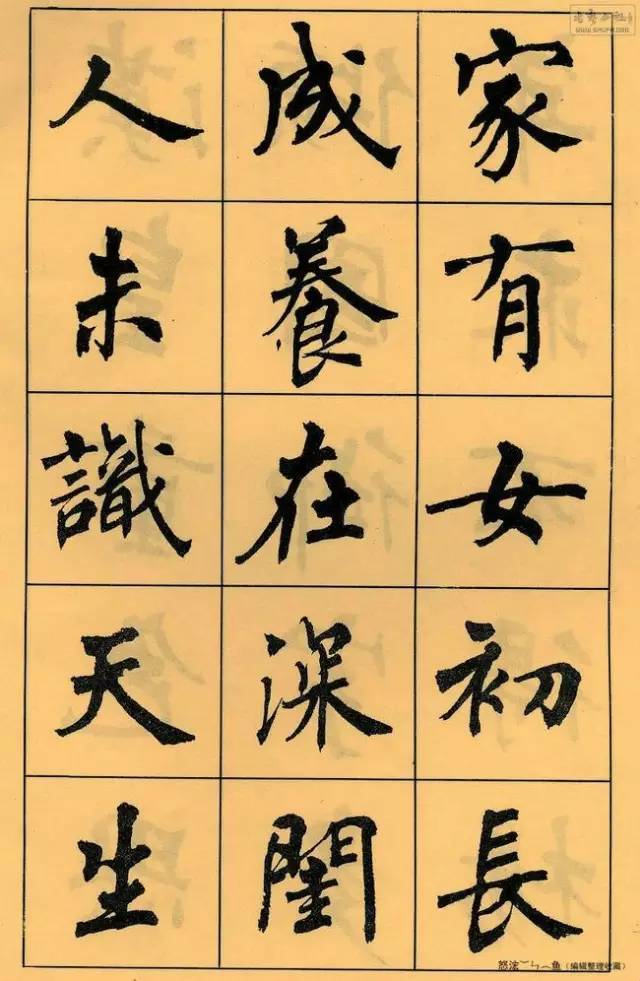 家有女初長
成養在深閨
人未識天生
怒浤﹀ㄣ︵鱼（编辑整理收藏）